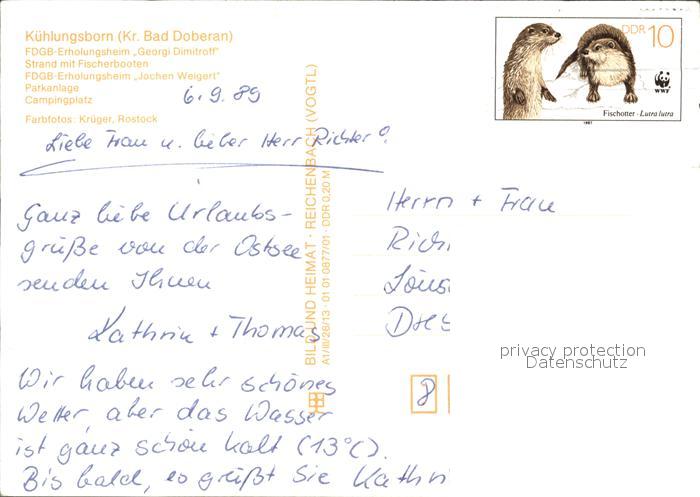 Kühlungsborn (Kr. Bad Doberan)
FDGB-Erholungsheim „Georgi Dimitroff"
Strand mit Fischerbooten
FDGB-Erholungsheim „Jochen Weigert"
Parkanlage
Campingplatz
Farbfotos: Krüger, Rostock
6.9.89
Liebe Frau u. lieber Herr Richter!
Ganz liebe Urlaubs-
grüße von der Ostsee
senden Ihnen
Kathrin + Thomas
Wir haben sehr schönes
Wetter, aber das Wasser
ist ganz schön kalt (13°C).
Bis bald, es grüßt Sie Kathri
BILD UND HEIMAT · REICHENBACH (VOGTL)
A1/III/26/13 · 01 01 0877/01 · DDR 0,20 M
DDR 10
WWF
Fischotter · Lutra lutra
1987
Herrn + Frau
Rich
8
privacy protection
Datenschutz